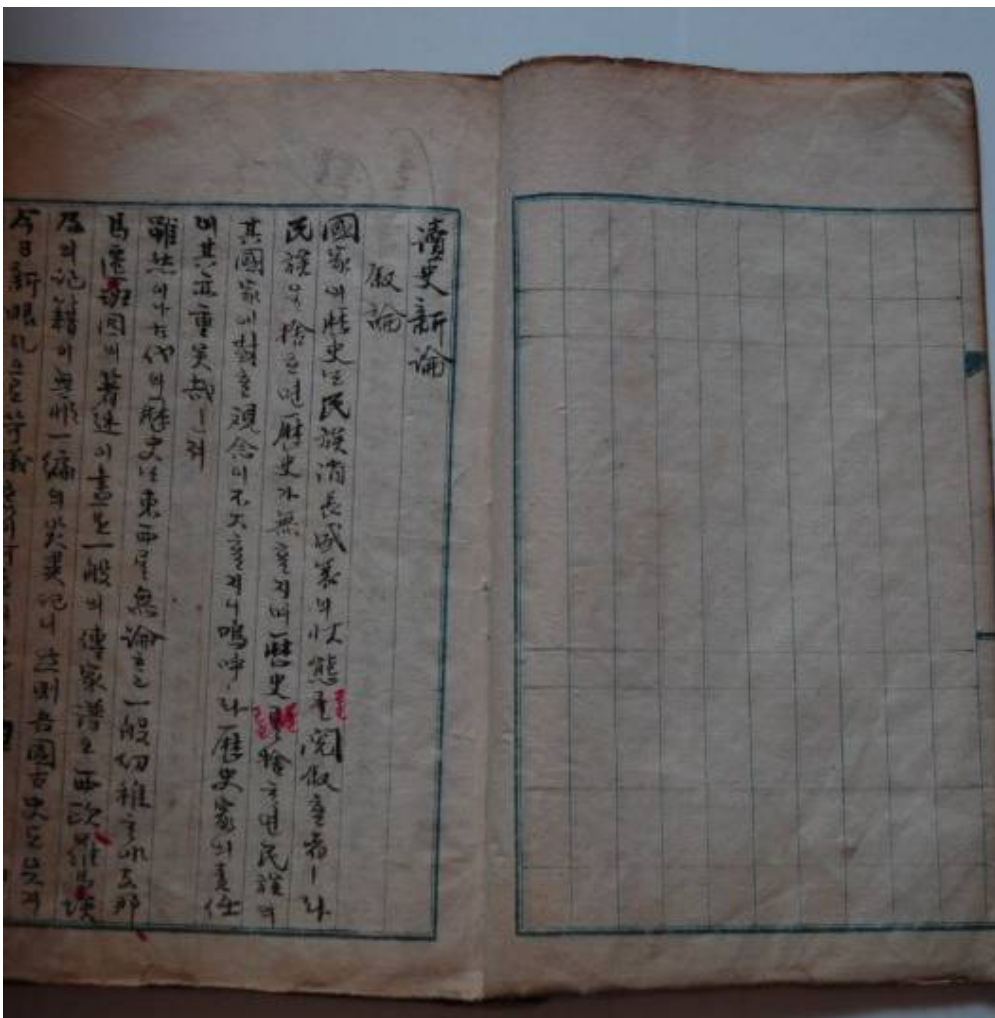 讀史新論
叙論
國家의歷史는民族消長盛衰의狀態를閱叙ᄒᆞᆫ者ㅣ라
民族을捨ᄒᆞ면歷史가無ᄒᆞᆯ지며歷史를捨ᄒᆞ면民族의
其國家에對ᄒᆞᆫ觀念이不大ᄒᆞᆯ지니嗚呼ㅣ라歷史家의責任
이其亦重矣哉ㅣᆫ져
雖然이나古代의歷史는東西를無論ᄒᆞ고一般幼稚ᄒᆞ야支那
馬遷班固의著述이盡是一般의傳家譜오西歐羅馬埃
及의記籍이無非一編의災異記니然則吾國古史도또ᄒᆞᆫ
今日新眼孔으로苛議